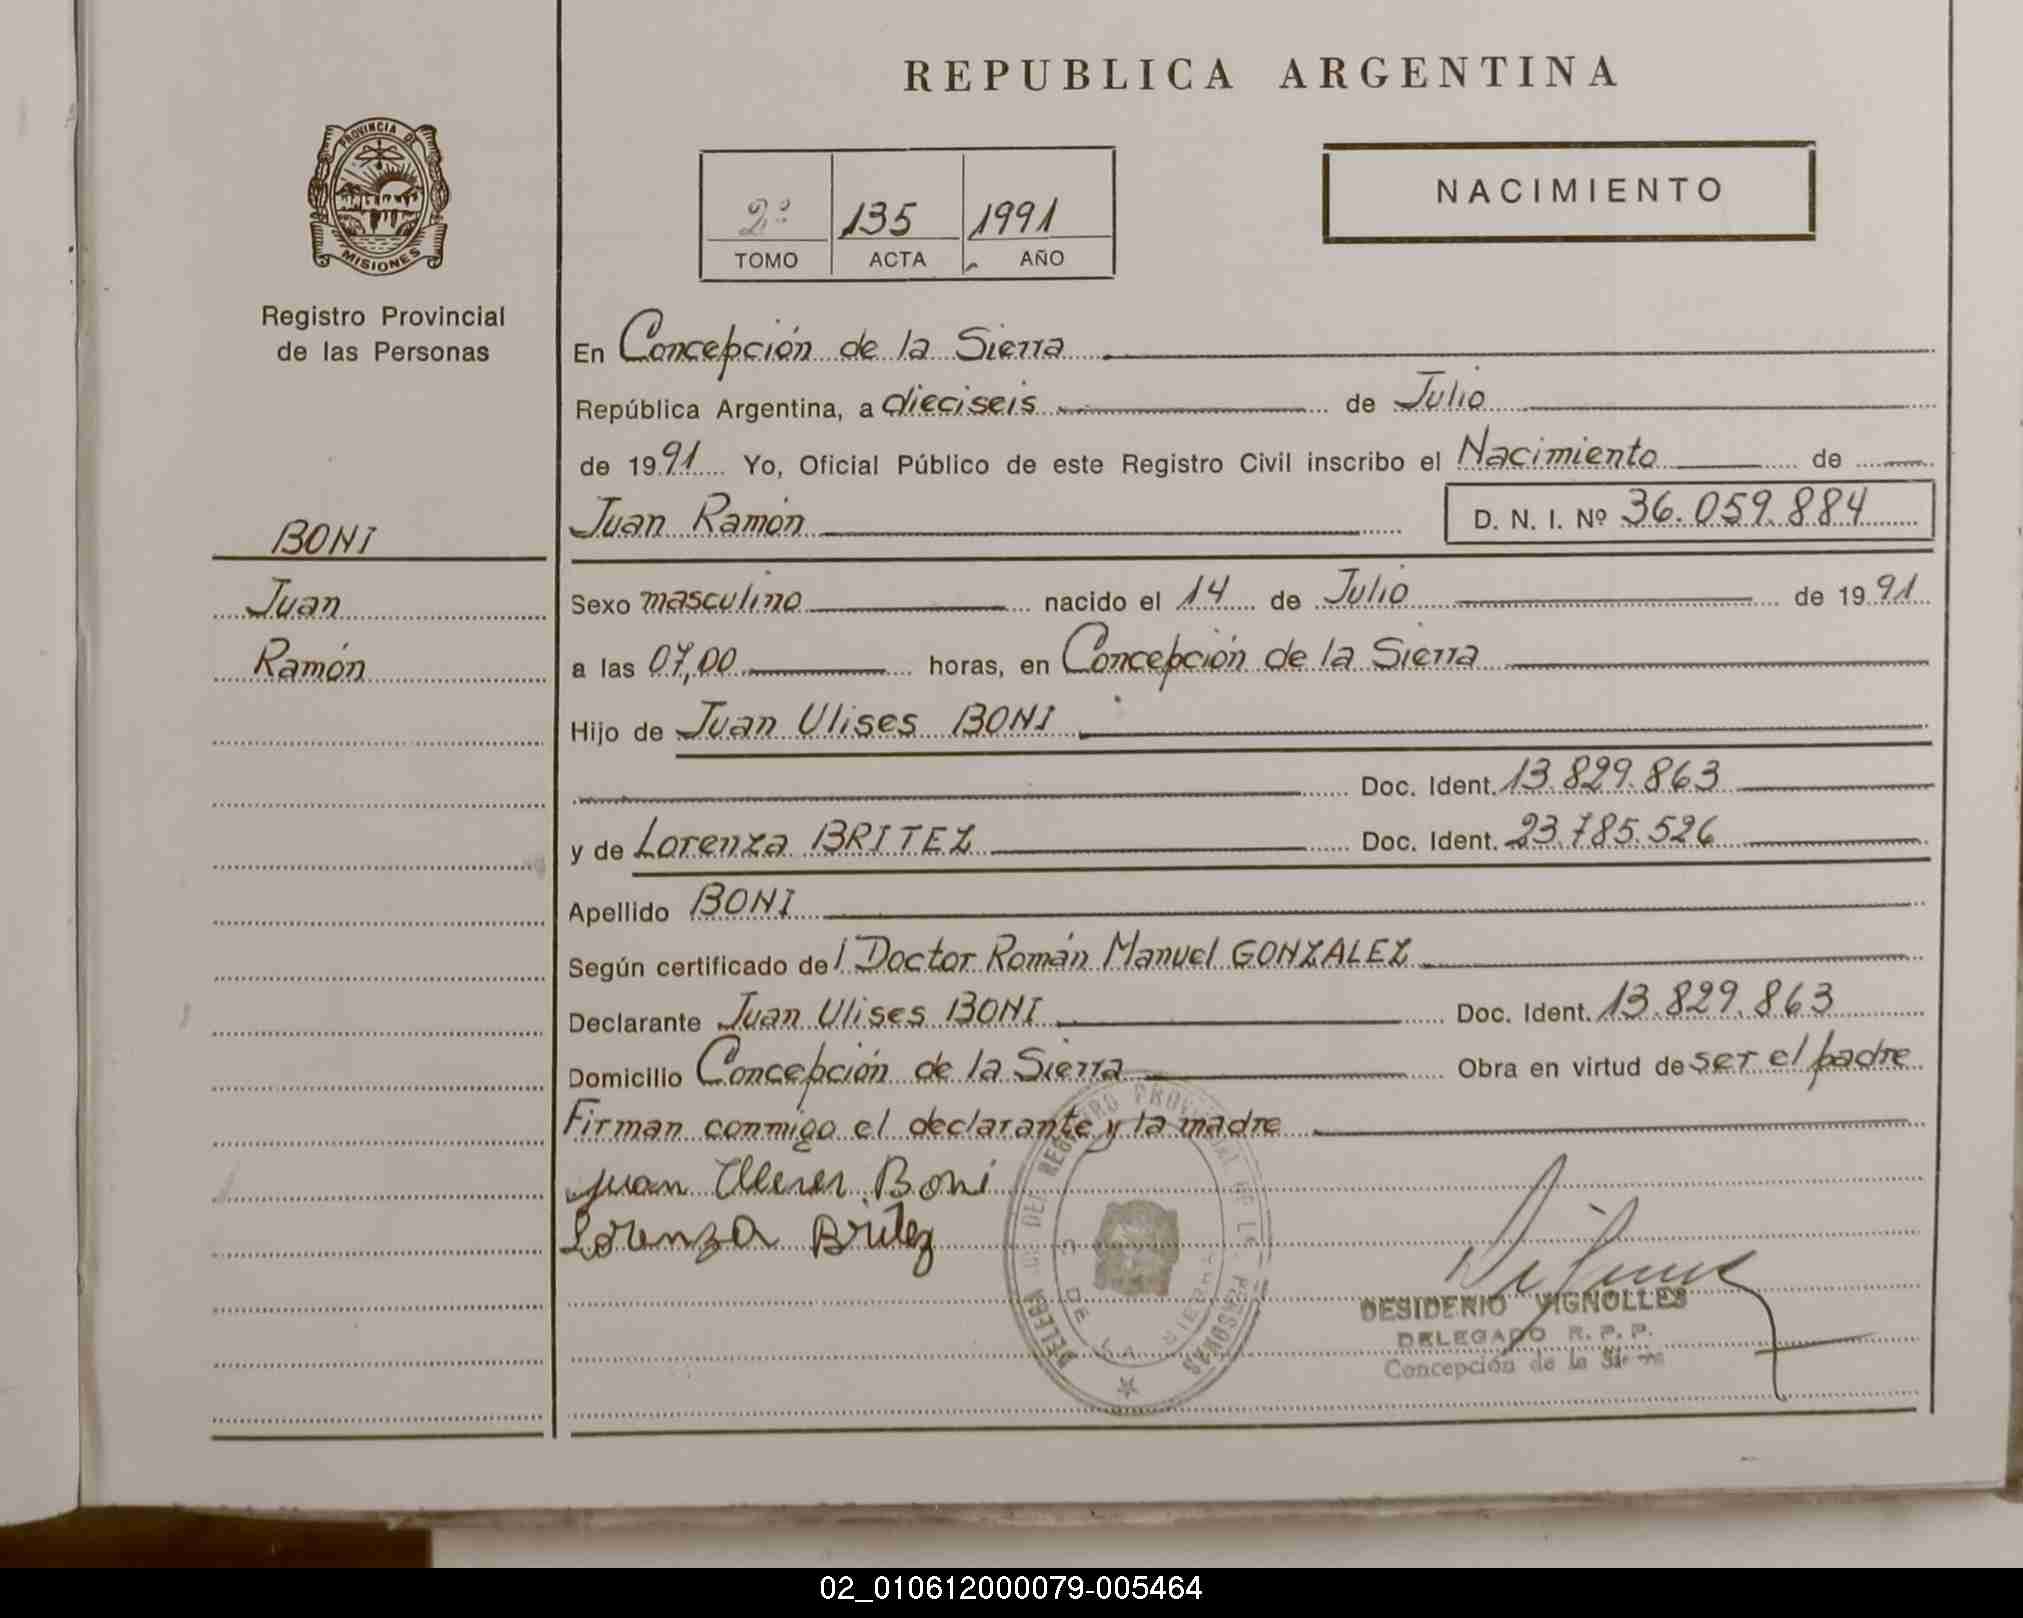 REPUBLICA ARGENTINA
PROVINCIA DE
MISIONES
Registro Provincial
de las Personas
2º 135 1991
TOMO ACTA AÑO
NACIMIENTO
En Concepción de la Sierra
República Argentina, a dieciseis de Julio
de 1991 Yo, Oficial Público de este Registro Civil inscribo el Nacimiento de
Juan Ramón D. N. I. Nº 36.059.884
BONI
Juan
Ramón
Sexo masculino nacido el 14 de Julio de 1991
a las 07,00 horas, en Concepción de la Sierra
Hijo de Juan Ulises BONI
Doc. Ident. 13.829.863
y de Lorenza BRITEZ Doc. Ident. 23.785.526
Apellido BONI
Según certificado del Doctor Román Manuel GONZALEZ
Declarante Juan Ulises BONI Doc. Ident. 13.829.863
Domicilio Concepción de la Sierra Obra en virtud de ser el padre
Firman conmigo el declarante y la madre
Juan Ulises Boni
Lorenza Britez
REGISTRO PROVINCIAL DE LAS PERSONAS
DE LA SIERRA
DESIDERIO VIGNOLLES
DELEGADO R. P. P.
Concepción de la Sierra
02_010612000079-005464